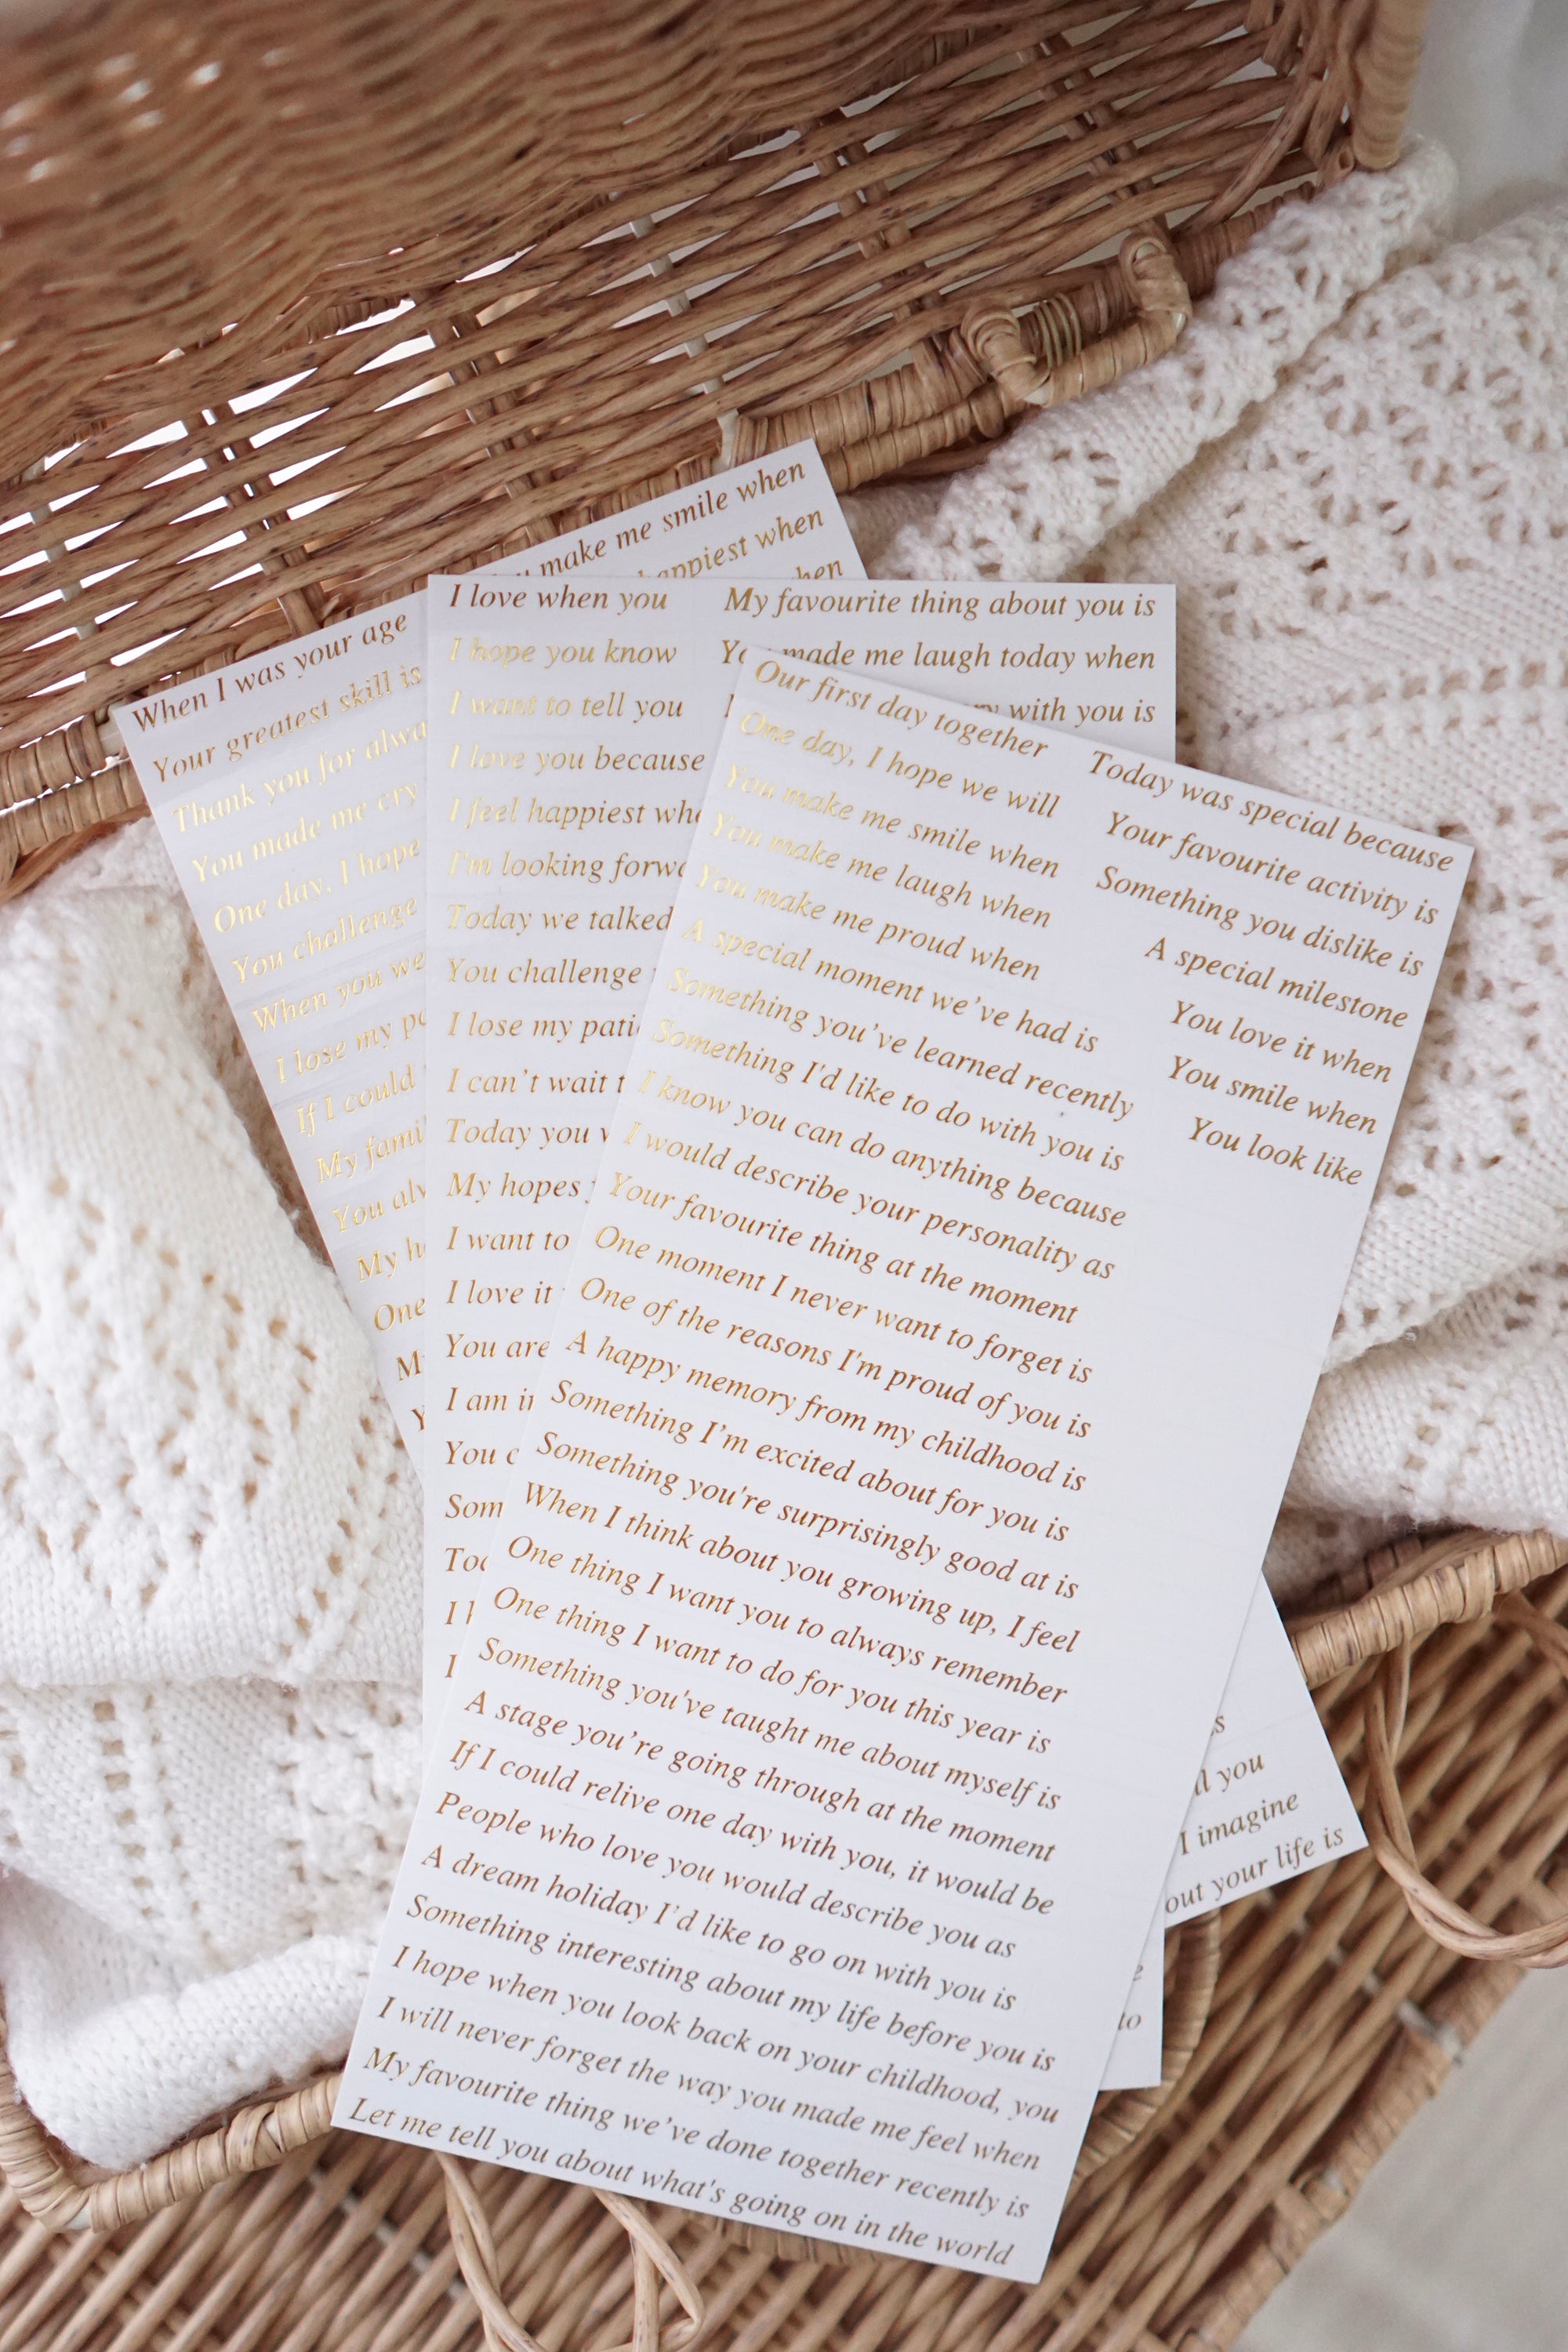 make me smile when
happiest when
when
When I was your age
Your greatest skill is
Thank you for
You made me cry
One day, I hope
You challenge
When you
I lose my
If I could
My
You
My
One
I love when you
I hope you know
I want to tell you
I love you because
I feel happiest
I'm looking
Today we talked
You challenge
I lose my
I can't wait
Today you
My hopes
I want to
I love it
You are
I am
You
I
My favourite thing about you is
made me laugh today when
with you is
Our first day together
One day, I hope we will
You make me smile when
You make me laugh when
You make me proud when
A special moment we've had is
Something you've learned recently
Something I'd like to do with you is
I know you can do anything because
I would describe your personality as
Your favourite thing at the moment
One moment I never want to forget is
One of the reasons I'm proud of you is
A happy memory from my childhood is
Something I'm excited about for you is
Something you're surprisingly good at is
When I think about you growing up, I feel
One thing I want you to always remember
One thing I want to do for you this year is
Something you've taught me about myself is
A stage you're going through at the moment
If I could relive one day with you, it would be
People who love you would describe you as
A dream holiday I'd like to go on with you is
Something interesting about my life before you is
I hope when you look back on your childhood, you
I will never forget the way you made me feel when
My favourite thing we've done together recently is
Let me tell you about what's going on in the world
Today was special because
Your favourite activity is
Something you dislike is
A special milestone
You love it when
You smile when
You look like
you
I imagine
your life is
to